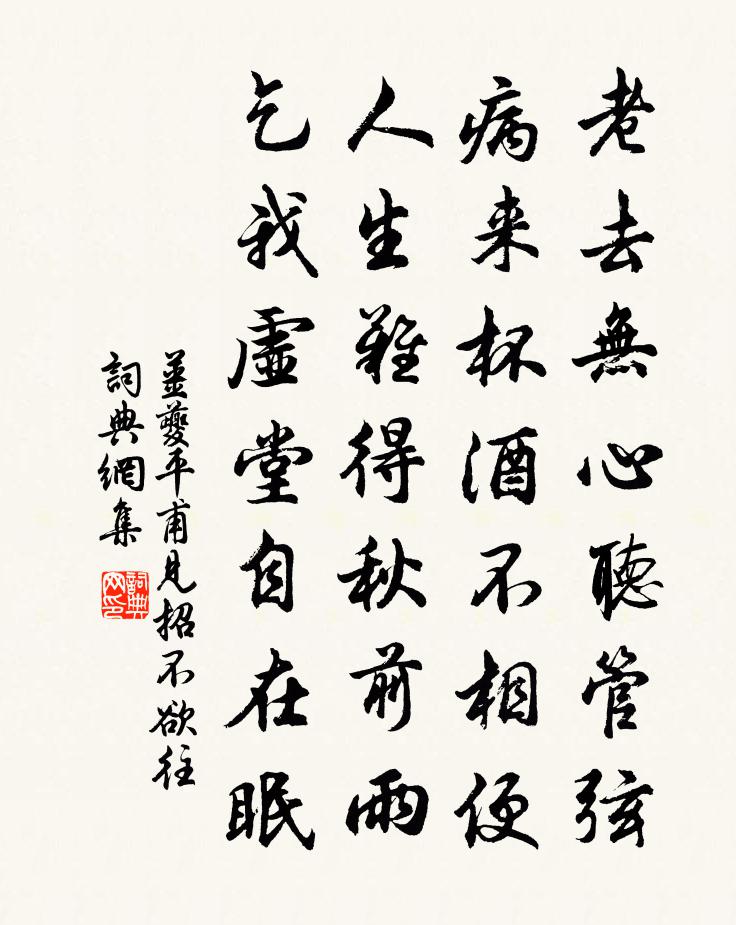 老去無心聽管弦
病来杯酒不相便
人生難得秋前雨
乞我虛堂自在眠
姜夔平甫見招不欲往
詞典網集
詞典
网印